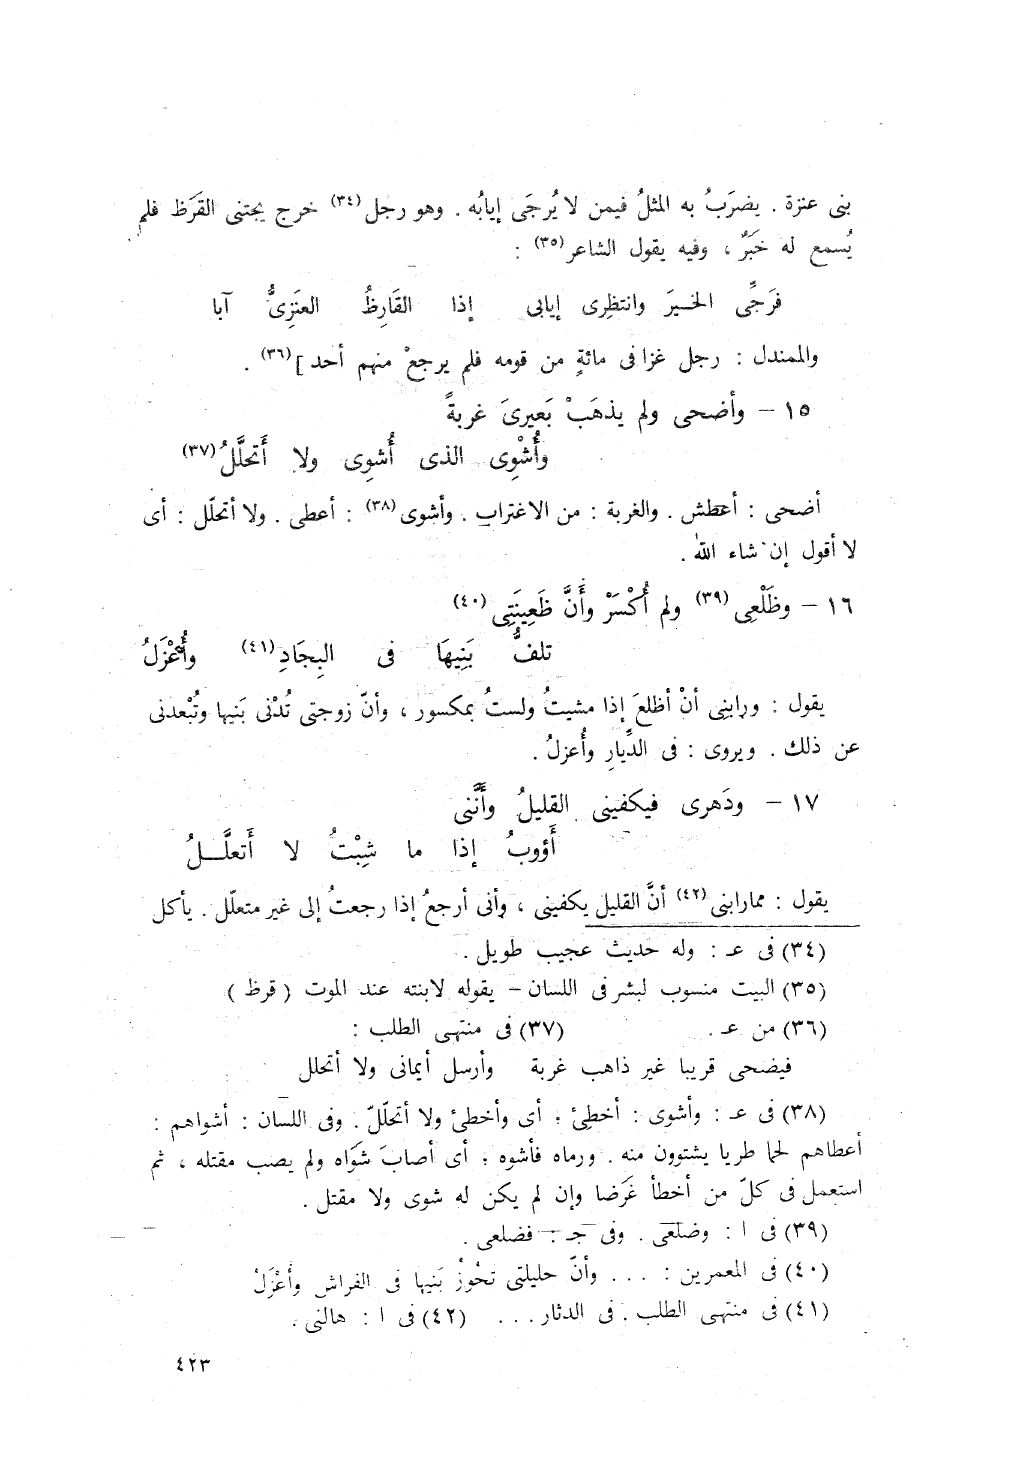 بنى عنزة . يضرَبُ به المثلُ فيمن لا يُرجَى إيابُه . وهو رجل (٣٤) خرج يجتنى القَرَظ فلم
يُسمع له خَبَرٌ ، وفيه يقول الشاعر (٣٥) :
فَرَجِّى الخــيرَ وانتظِرى إيابى إذا القَارِظُ العنَزِىُّ آبا
والممندل : رجل غزا فى مائةٍ من قومه فلم يرجعْ منهم أحد ] (٣٦) .
١٥ – وأضحى ولم يذهَبْ بَعيرىَ غربةً
وأُشْوِى الذى أُشوِى ولا أَتحلَّلُ (٣٧)
أضحى : أعطش . والغربة : من الاغتراب . وأشوى (٣٨) : أعطى . ولا أتحلّل : أى
لا أقول إن شاء الله .
١٦ – وظَلْعِى (٣٩) ولم أُكْسَرْ وأَنَّ ظَعِينَتِى (٤٠)
تلفُّ بَنِيهَا فى البِجَادِ (٤١) وأُعْزَلُ
يقول : ورابنِى أنْ أظلعَ إذا مشيتُ ولستُ بمكسور ، وأنّ زوجتى تُدْنى بَنيها وتُبْعدنى
عن ذلك . ويروى : فى الدِّيارِ وأُعزلُ .
١٧ – ودَهرى فيكفينى القليلُ وأنَّنى
أَؤوبُ إذا ما شِبْتُ لا أَتعلَّــلُ
يقول : مما رابنى (٤٢) أنَّ القليل يكفينى ، وأنى أرجعُ إذا رجعتُ إلى غير متعلّل . يأكل
(٣٤) فى عـ : وله حديث عجيب طويل .
(٣٥) البيت منسوب لبشر فى اللسان – يقوله لابنته عند الموت ( قرظ )
(٣٦) من عـ . (٣٧) فى منتهى الطلب :
فيضحى قريبا غير ذاهب غربة وأرسل أيمانى ولا أتحلل
(٣٨) فى عـ : وأشوى : أخطِئ ؛ أى وأخطئ ولا أتحلّلّ . وفى اللسان : أشواهم :
أعطاهم لحما طريا يشتوون منه . ورماه فأشوه ؛ أى أصابَ شَوَاه ولم يصب مقتله ، ثم
استعمل فى كلّ من أخطأ غَرَضا وإن لم يكن له شوى ولا مقتل .
(٣٩) فى ا : وضلعى . وفى جـ : فضلعى .
(٤٠) فى المعمرين : ... وأنّ حليلتى تحُوزُ بَنيها فى الفراش وأُعْزَلُ
(٤١) فى منتهى الطلب . فى الدثار ... (٤٢) فى ا : هالنى .
٤٢٣